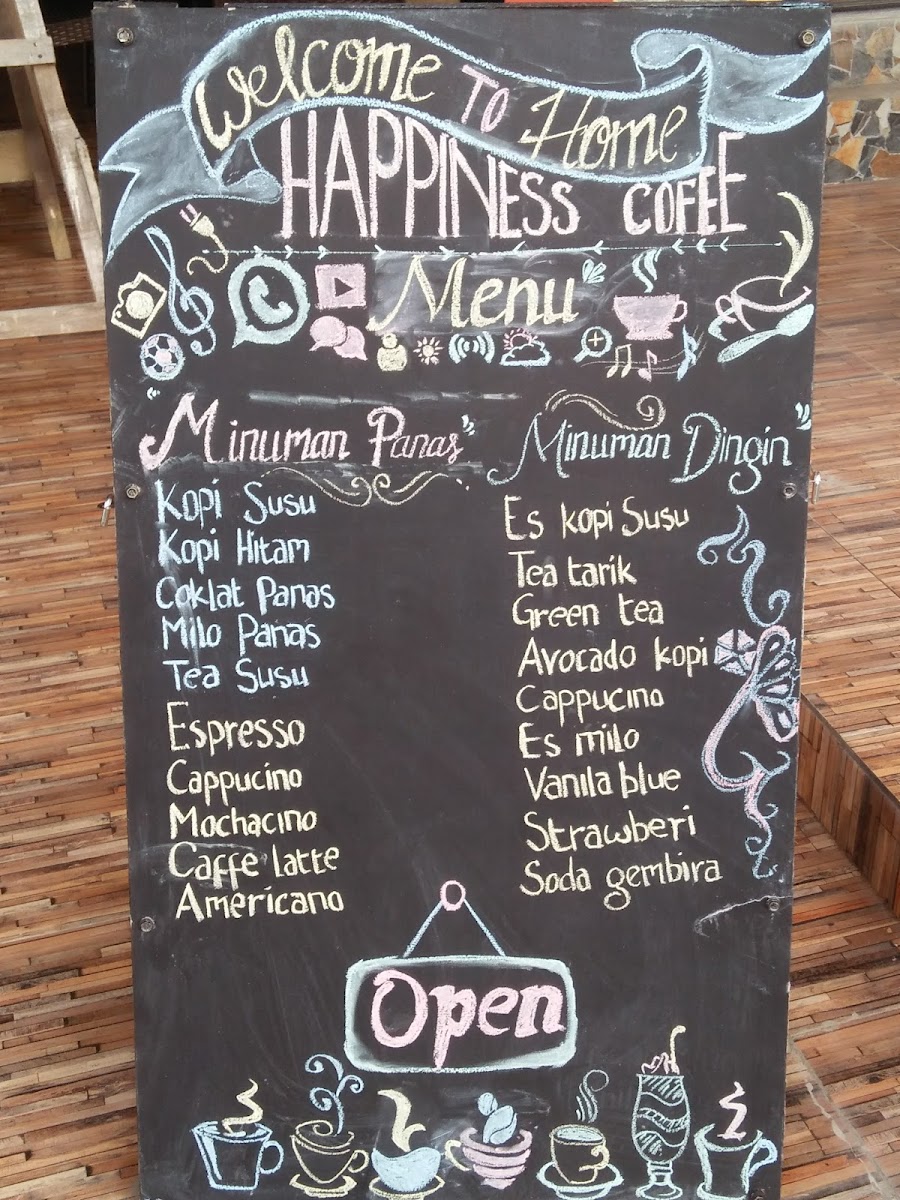 Welcome TO Home
HAPPINESS COFEE
Menu
Minuman Panas
Kopi Susu
Kopi Hitam
Coklat Panas
Milo Panas
Tea Susu
Espresso
Cappucino
Mochacino
Caffe latte
Americano
Minuman Dingin
Es kopi Susu
Tea tarik
Green tea
Avocado kopi
Cappucino
Es milo
Vanila blue
Strawberi
Soda gembira
Open